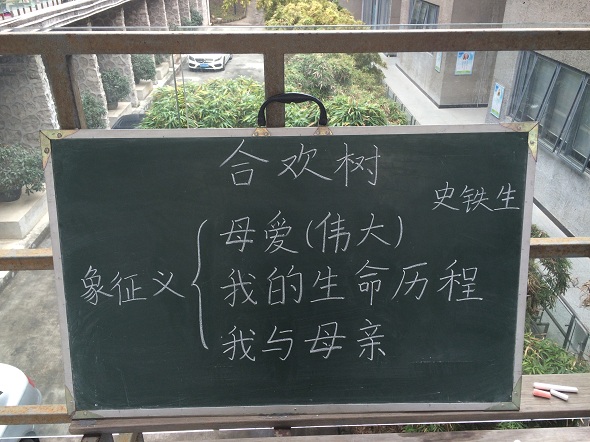 合欢树
史铁生
象征义
母爱(伟大)
我的生命历程
我与母亲